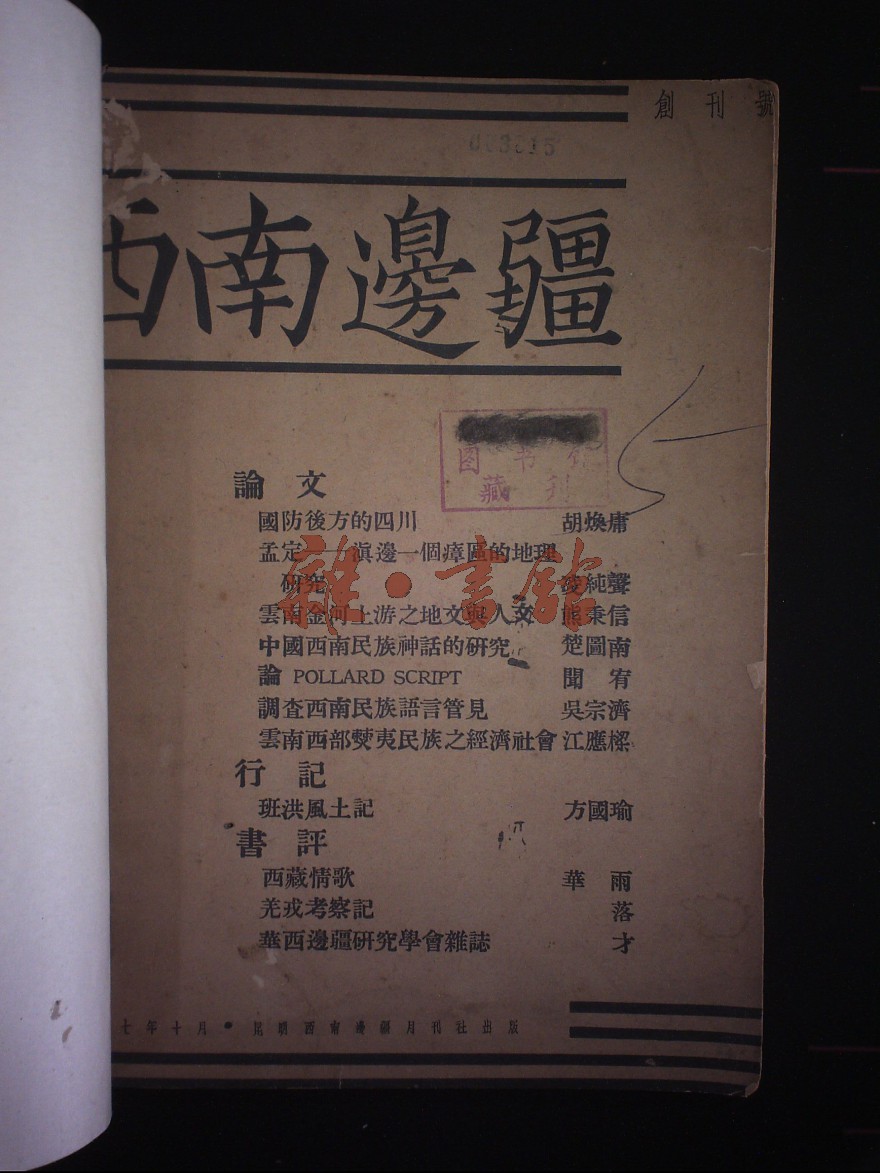 創刊號
003815
西南邊疆
图书馆
藏刊
論文
國防後方的四川 胡煥庸
孟定——滇邊一個瘴區的地理
研究 凌純聲
雲南金河上游之地文與人文 熊秉信
中國西南民族神話的研究 楚圖南
論 POLLARD SCRIPT 聞宥
調查西南民族語言管見 吳宗濟
雲南西部僰夷民族之經濟社會 江應樑
行記
班洪風土記 方國瑜
書評
西藏情歌 華雨
羌戎考察記 落
華西邊疆研究學會雜誌 才
七年十月·昆明西南邊疆月刊社出版
雜·書館